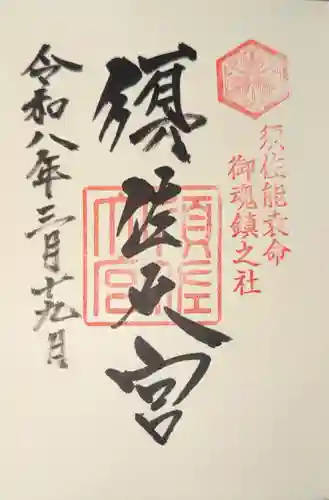 須佐能袁命
御魂鎮之社
須佐大宮
須佐大宮
令和八年三月十九日